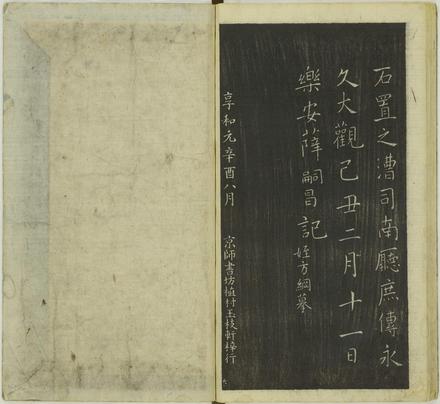 石置之漕司南廳庶傳永
久大觀己丑二月十一日
樂安薛嗣昌記
姪方綱摹
享和元辛酉八月
京師書坊植村玉枝軒梓行